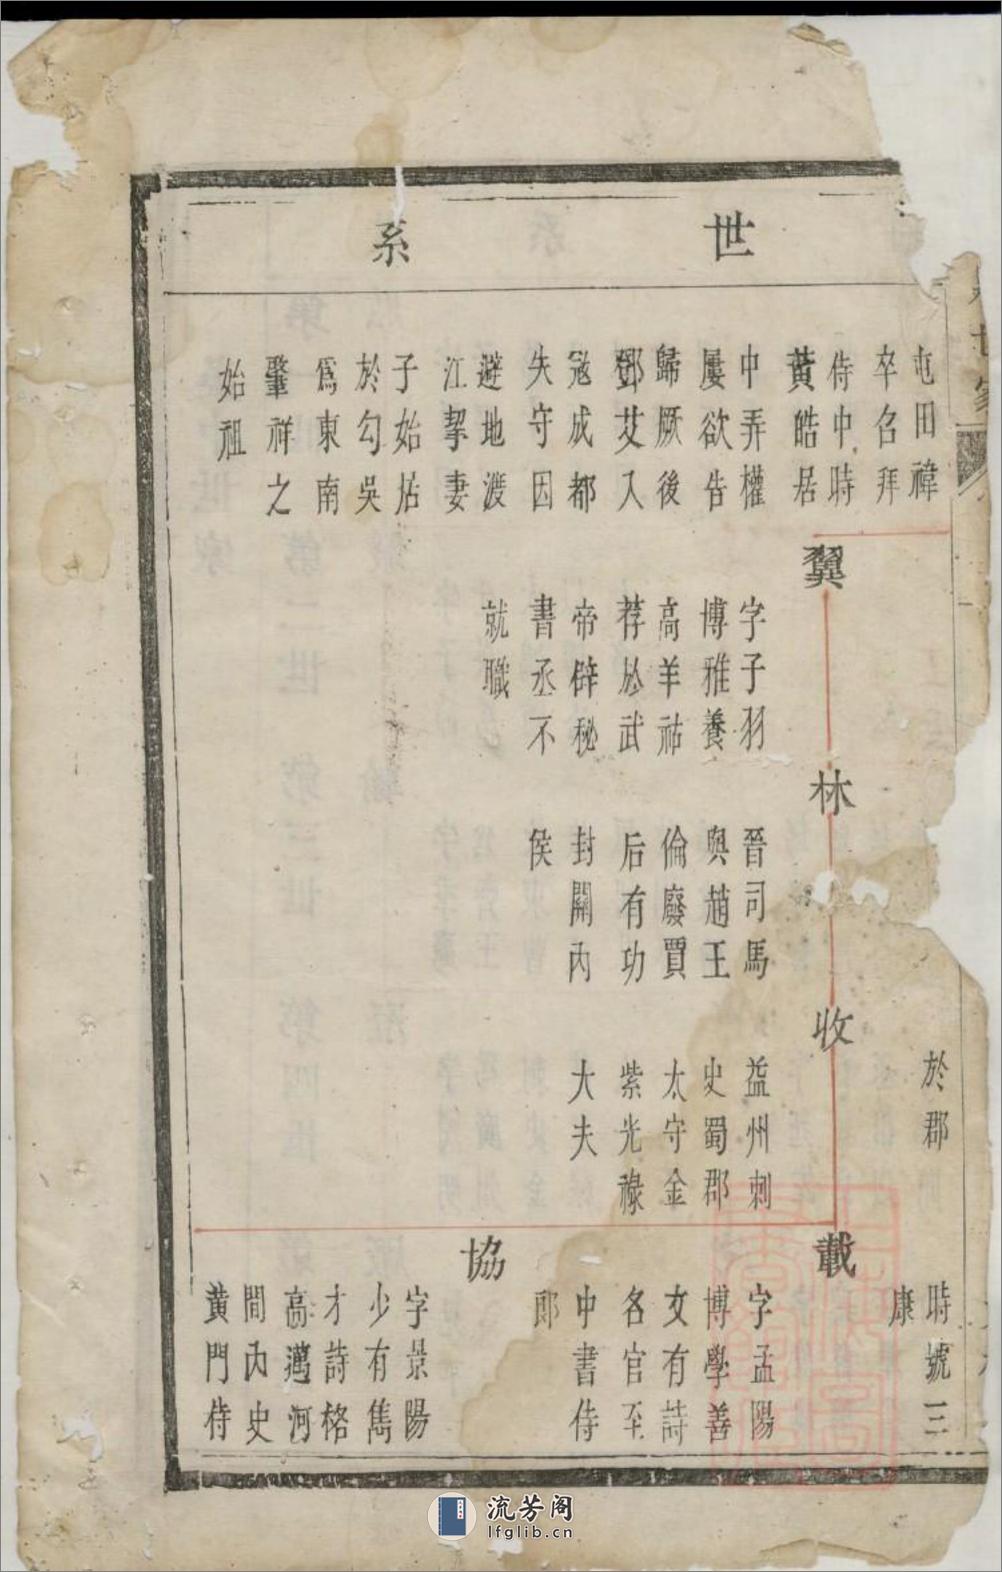 世系
屯田禕
卒名拜
侍中時
黃皓居
中弄權
屢欲告
歸厥後
鄧艾入
冦成都
失守因
避地渡
江挈妻
子始居
於勾吳
爲東南
肇祥之
始祖
翼
字子羽
博雅養
高羊祜
荐於武
帝辟秘
書丞不
就職
林
晉司馬
與趙王
倫廢賈
后有功
封關內
侯
於郡
收
益州刺
史蜀郡
太守金
紫光祿
大夫
時號三
康
載
字孟陽
博學善
文有詩
名官至
中書侍
郎
協
字景陽
少有雋
才詩格
高邁河
間內史
黃門侍
流芳阁
lfglib.cn